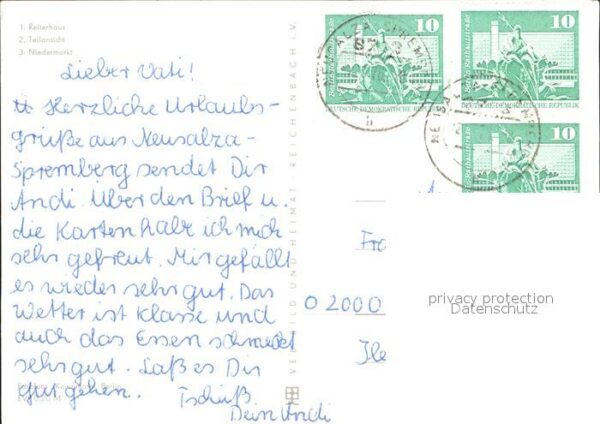 1. Reiterhaus
2. Teilansicht
3. Niedermarkt
Lieber Vati!
Herzliche Urlaubs-
grüße aus Neusalza-
Spremberg sendet Dir
Andi. Über den Brief u.
die Karten habe ich mich
sehr gefreut. Mir gefällt
es wieder sehr gut. Das
Wetter ist klasse und
auch das Essen schmeckt
sehr gut. Laß es Dir
gut gehen. Tschüß
Dein Andi
VERLAG BILD UND HEIMAT REICHENBACH i. V.
10
10
10
DEUTSCHE DEMOKRATISCHE REPUBLIK
DEUTSCHE DEMOKRATISCHE REPUBLIK
O 2000
privacy protection
Datenschutz